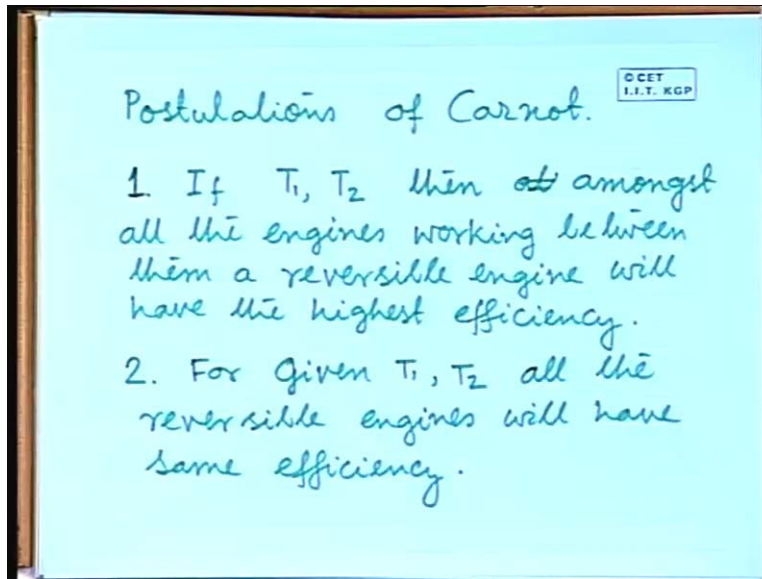 © CET
I.I.T. KGP
Postulations of Carnot.
1. If T₁, T₂ then amongst
all the engines working between
them a reversible engine will
have the highest efficiency.
2. For Given T₁, T₂ all the
reversible engines will have
same efficiency.